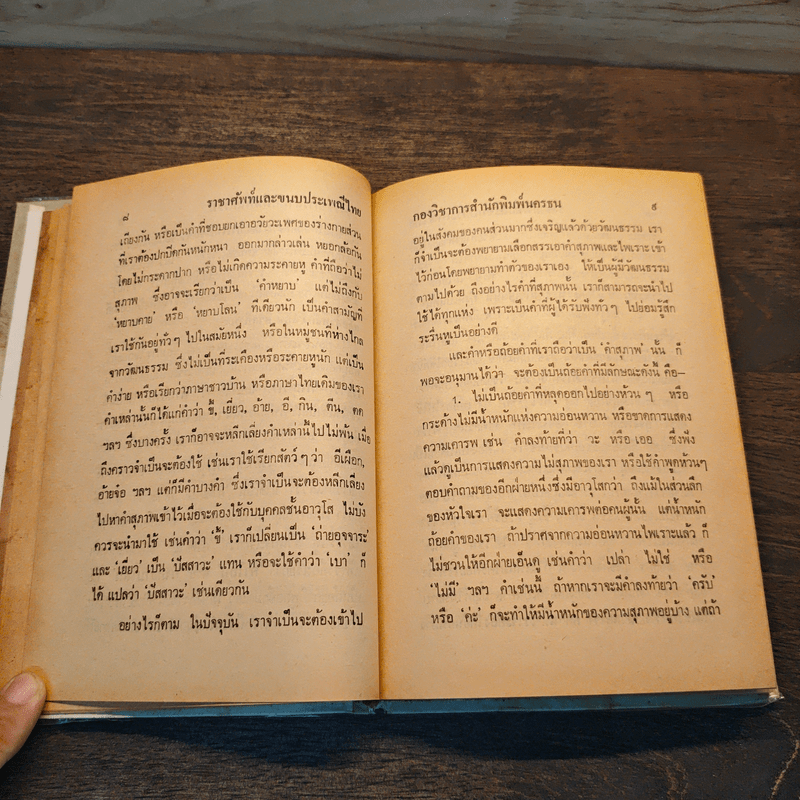 ๘ ราชาศัพท์และขนบประเพณีไทย
เถียงกัน หรือเป็นคำที่ชอบยกเอาอวัยวะเพศของร่างกายส่วน
ที่เราต้องปกปิดกันหนักหนา ออกมากล่าวเล่น หยอกล้อกัน
โดยไม่กระดากปาก หรือไม่เกิดความระคายหู คำที่ถือว่าไม่
สุภาพ ซึ่งอาจจะเรียกว่าเป็น 'คำหยาบ' แต่ไม่ถึงกับ
'หยาบคาย' หรือ 'หยาบโลน' ทีเดียวนัก เป็นคำสามัญที่
เราใช้กันอยู่ทั่วๆ ไปในสมัยหนึ่ง หรือในหมู่ชนที่ห่างไกล
จากวัฒนธรรม ซึ่งไม่เป็นที่ระเคืองหรือระคายหูนัก แต่เป็น
คำง่าย หรือเรียกว่าภาษาชาวบ้าน หรือภาษาไทยเดิมของเรา
คำเหล่านั้นก็ได้แก่คำว่า ขี้, เยี่ยว, อ้าย, อี, กิน, ตีน, ตด
ฯลฯ ซึ่งบางครั้ง เราก็อาจจะหลีกเลี่ยงคำเหล่านี้ไปไม่พ้น เมื่อ
ถึงคราวจำเป็นจะต้องใช้ เช่นเราใช้เรียกสัตว์ๆ ว่า อีเผือก,
อ้ายจ๋อ ฯลฯ แต่ก็มีคำบางคำ ซึ่งเราจำเป็นจะต้องหลีกเลี่ยง
ไปหาคำสุภาพเข้าไว้เมื่อจะต้องใช้กับบุคคลชั้นอาวุโส ไม่บัง
ควรจะนำมาใช้ เช่นคำว่า 'ขี้' เราก็เปลี่ยนเป็น 'ถ่ายอุจจาระ'
และ 'เยี่ยว' เป็น 'ปัสสาวะ' แทน หรือจะใช้คำว่า 'เบา' ก็
ได้ แปลว่า 'ปัสสาวะ' เช่นเดียวกัน
อย่างไรก็ตาม ในปัจจุบัน เราจำเป็นจะต้องเข้าไป
กองวิชาการสำนักพิมพ์นครธน ๙
อยู่ในสังคมของคนส่วนมากซึ่งเจริญแล้วด้วยวัฒนธรรม เรา
ก็จำเป็นจะต้องพยายามเลือกสรรเอาคำสุภาพและไพเราะเข้า
ไว้ก่อนโดยพยายามทำตัวของเราเอง ให้เป็นผู้มีวัฒนธรรม
ตามไปด้วย ถึงอย่างไรคำที่สุภาพนั้น เราก็สามารถจะนำไป
ใช้ได้ทุกแห่ง เพราะเป็นคำที่ผู้ได้รับฟังทั่วๆ ไปย่อมรู้สึก
ระรื่นหูเป็นอย่างดี
และคำหรือถ้อยคำที่เราถือว่าเป็น 'คำสุภาพ' นั้น ก็
พอจะอนุมานได้ว่า จะต้องเป็นถ้อยคำที่มีลักษณะดังนี้ คือ—
1. ไม่เป็นถ้อยคำที่หลุดออกไปอย่างห้วนๆ หรือ
กระด้างไม่มีน้ำหนักแห่งความอ่อนหวาน หรือขาดการแสดง
ความเคารพ เช่น คำลงท้ายที่ว่า วะ หรือ เออ ซึ่งฟัง
แล้วดูเป็นการแสดงความไม่สุภาพของเรา หรือใช้คำพูดห้วนๆ
ตอบคำถามของอีกฝ่ายหนึ่งซึ่งมีอาวุโสกว่า ถึงแม้ในส่วนลึก
ของหัวใจเรา จะแสดงความเคารพต่อคนผู้นั้น แต่น้ำหนัก
ถ้อยคำของเรา ถ้าปราศจากความอ่อนหวานไพเราะแล้ว ก็
ไม่ชวนให้อีกฝ่ายเอ็นดู เช่นคำว่า เปล่า ไม่ใช่ หรือ
'ไม่มี' ฯลฯ คำเช่นนี้ ถ้าหากเราจะมีคำลงท้ายว่า 'ครับ'
หรือ 'ค่ะ' ก็จะทำให้มีน้ำหนักของความสุภาพอยู่บ้าง แต่ถ้า